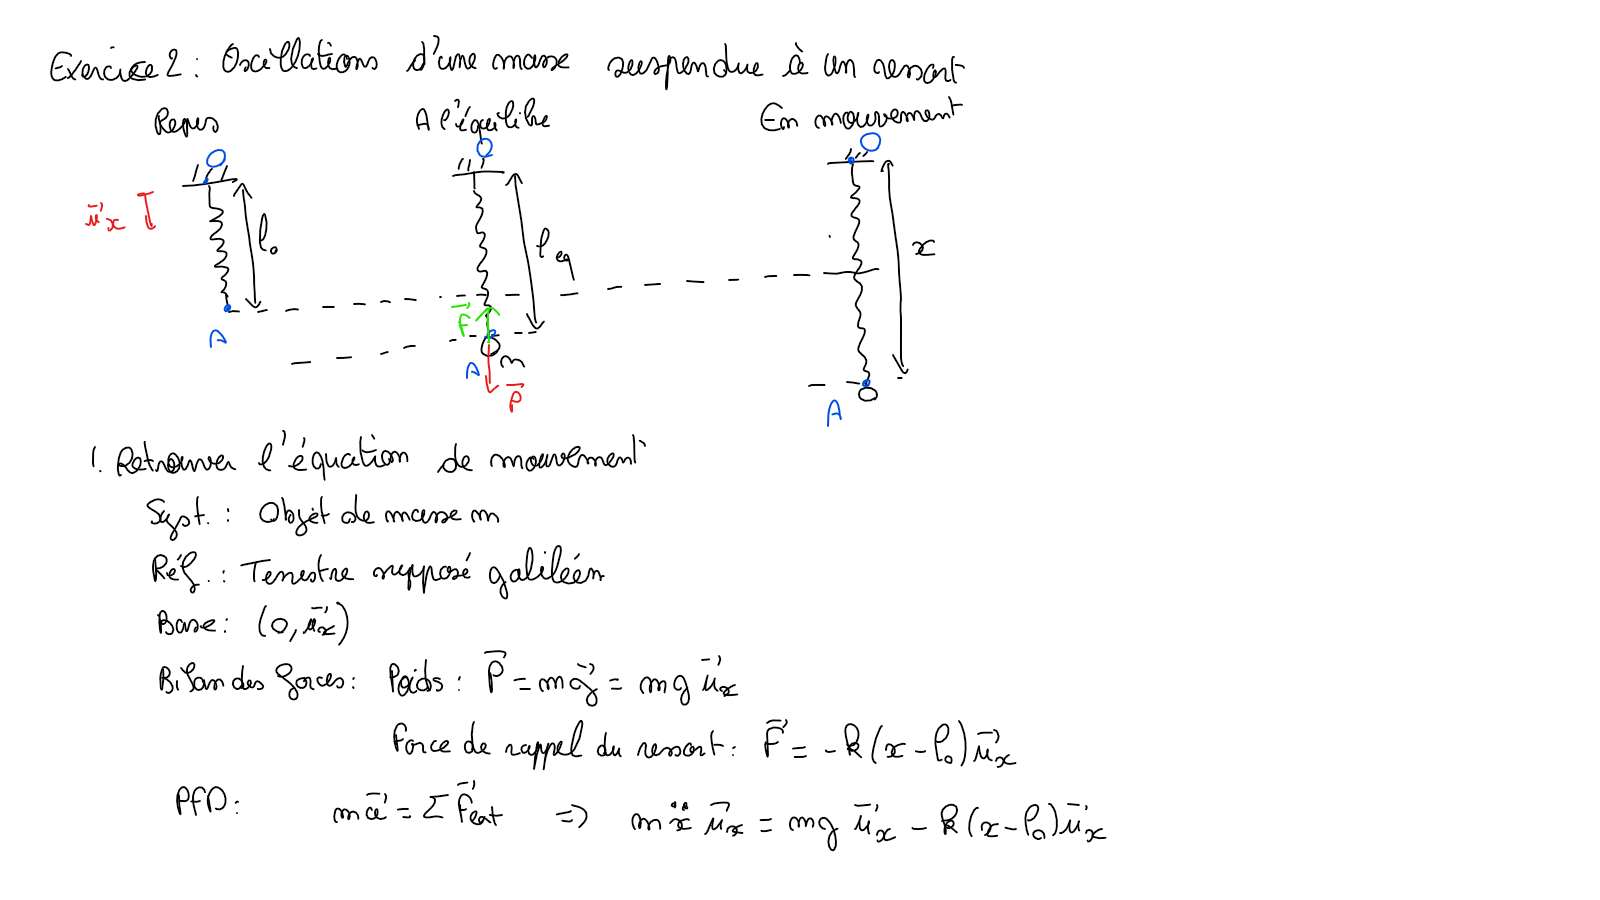 Exercice 2 : Oscillations d'une masse suspendue à un ressort
Repos
A l'équilibre
En mouvement
O
O
O
u⃗x
l₀
l eq
x
F⃗
A
A
m
P⃗
A
1. Retrouver l'équation de mouvement
Syst. : Objet de masse m
Réf. : Terrestre supposé galiléen
Base : (O, u⃗x)
Bilan des forces : Poids : P⃗ = mg⃗ = mg u⃗x
Force de rappel du ressort : F⃗ = -k(x-l₀)u⃗x
PFD : ma⃗ = ΣF⃗ext => mẍ u⃗x = mg u⃗x - k(x-l₀)u⃗x